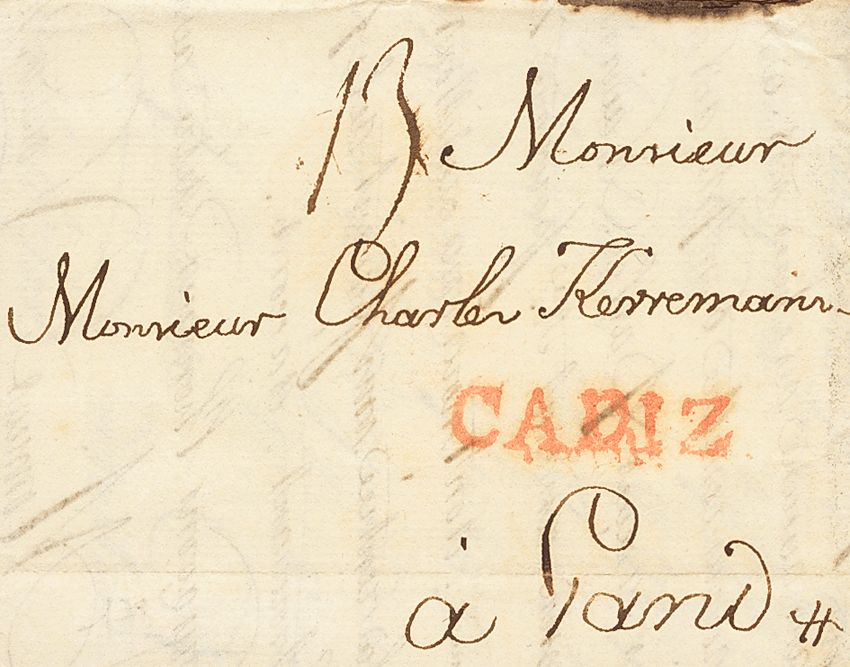 13 Monsieur
Monsieur Charles Kerremans
CADIZ
à Gand #